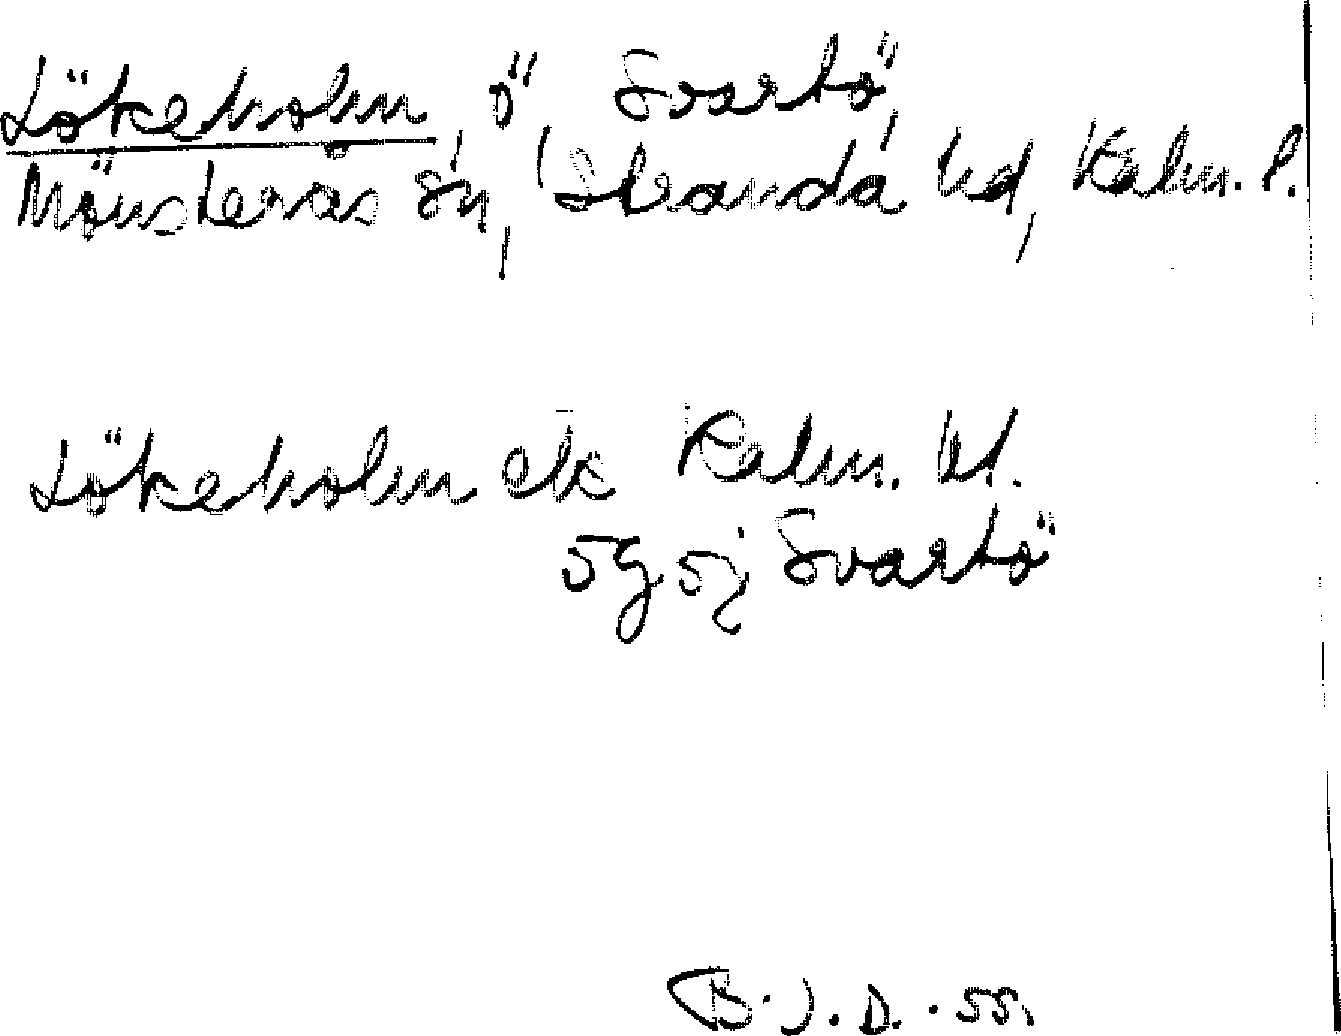 Lökeholm, ö, Svartö,
Mönsterås sn, Stranda hd, Kalm. l.
Lökeholm ek Kalm. bl.
5g 5j Svartö
B.J.D. 55.